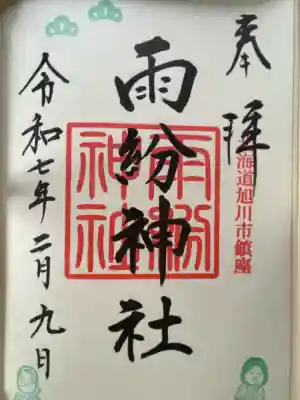 奉拝
海道旭川市鎮座
雨紛神社
雨紛神社
令和七年二月九日